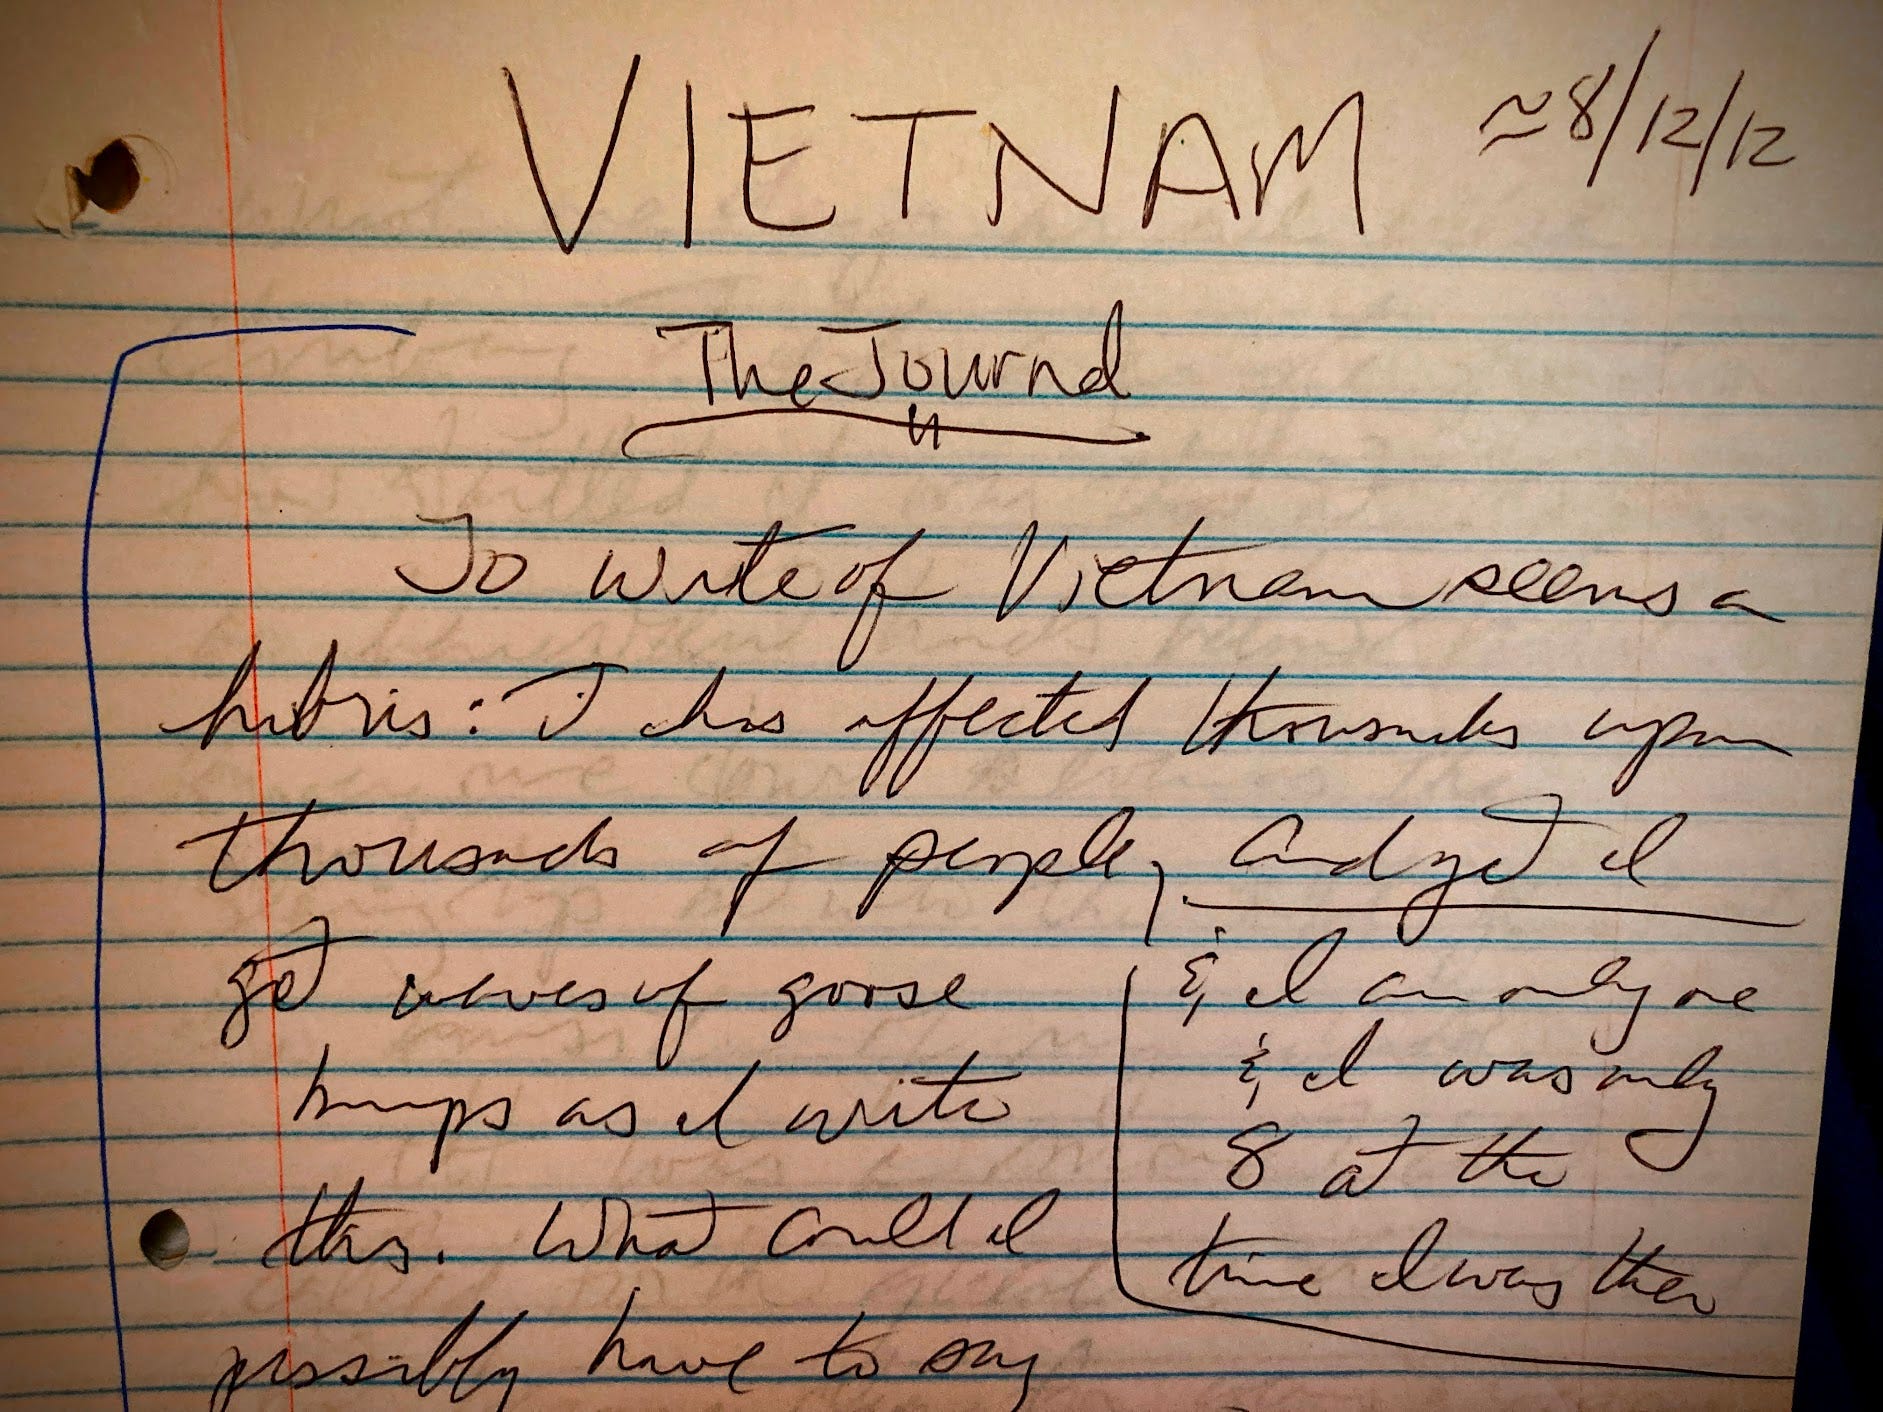 VIETNAM ≈8/12/12
The Journal
To write of Vietnam seems a
hubris: It has affected thousands upon
thousands of people, and yet I
get waves of goose
bumps as I write
this. What could I
possibly have to say
& I am only one
& I was only
8 at the
time I was there